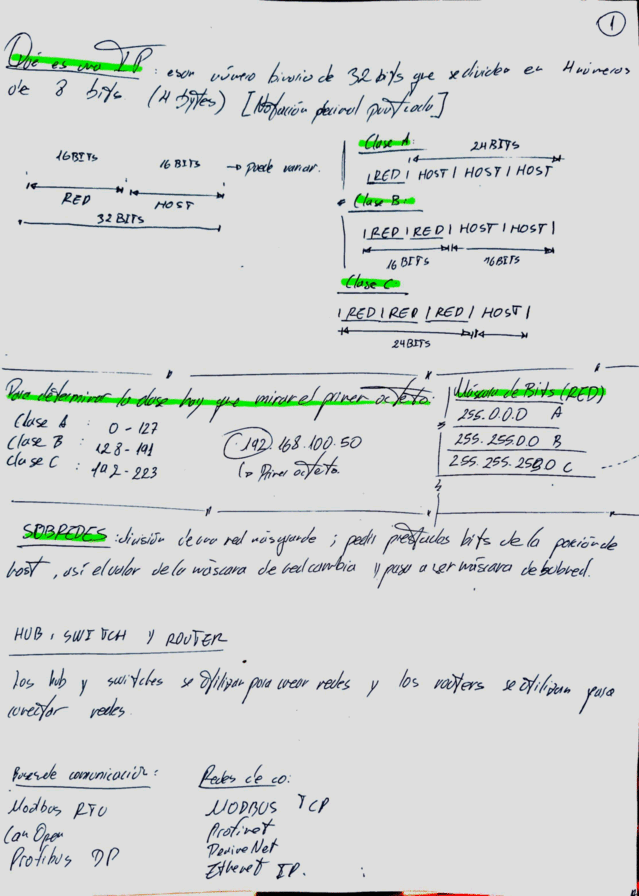 1
Qué es una IP : es un número binario de 32 bits que se dividen en 4 números
de 8 bits (4 bytes) [Notación decimal punteada]
16BITS 16 BITS → puede variar.
RED HOST
32 BITS
Clase A: 24BITS
| RED | HOST | HOST | HOST
Clase B:
| RED | RED | HOST | HOST |
16 BITS 16BITS
Clase C:
| RED | RED | RED | HOST |
24BITS
Para determinar la clase hay que mirar el primer octeto:
Clase A : 0 - 127
Clase B : 128 - 191
Clase C : 192 - 223
192.168.100.50
↳ Primer octeto.
Máscara de Bits (RED)
255.0.0.0 A
255.255.0.0 B
255.255.255.0 C
SUBREDES : división de una red más grande ; pedir prestados bits de la porción de
host , así el valor de la máscara de red cambia y pasa a ser máscara de subred.
HUB , SWITCH Y ROUTER
Los hub y switches se utilizan para crear redes y los routers se utilizan para
conectar redes.
Buses de comunicación :
Modbus RTU
Can Open
Profibus DP
Redes de co:
MODBUS TCP
Profinet
DeviceNet
Ethernet IP.